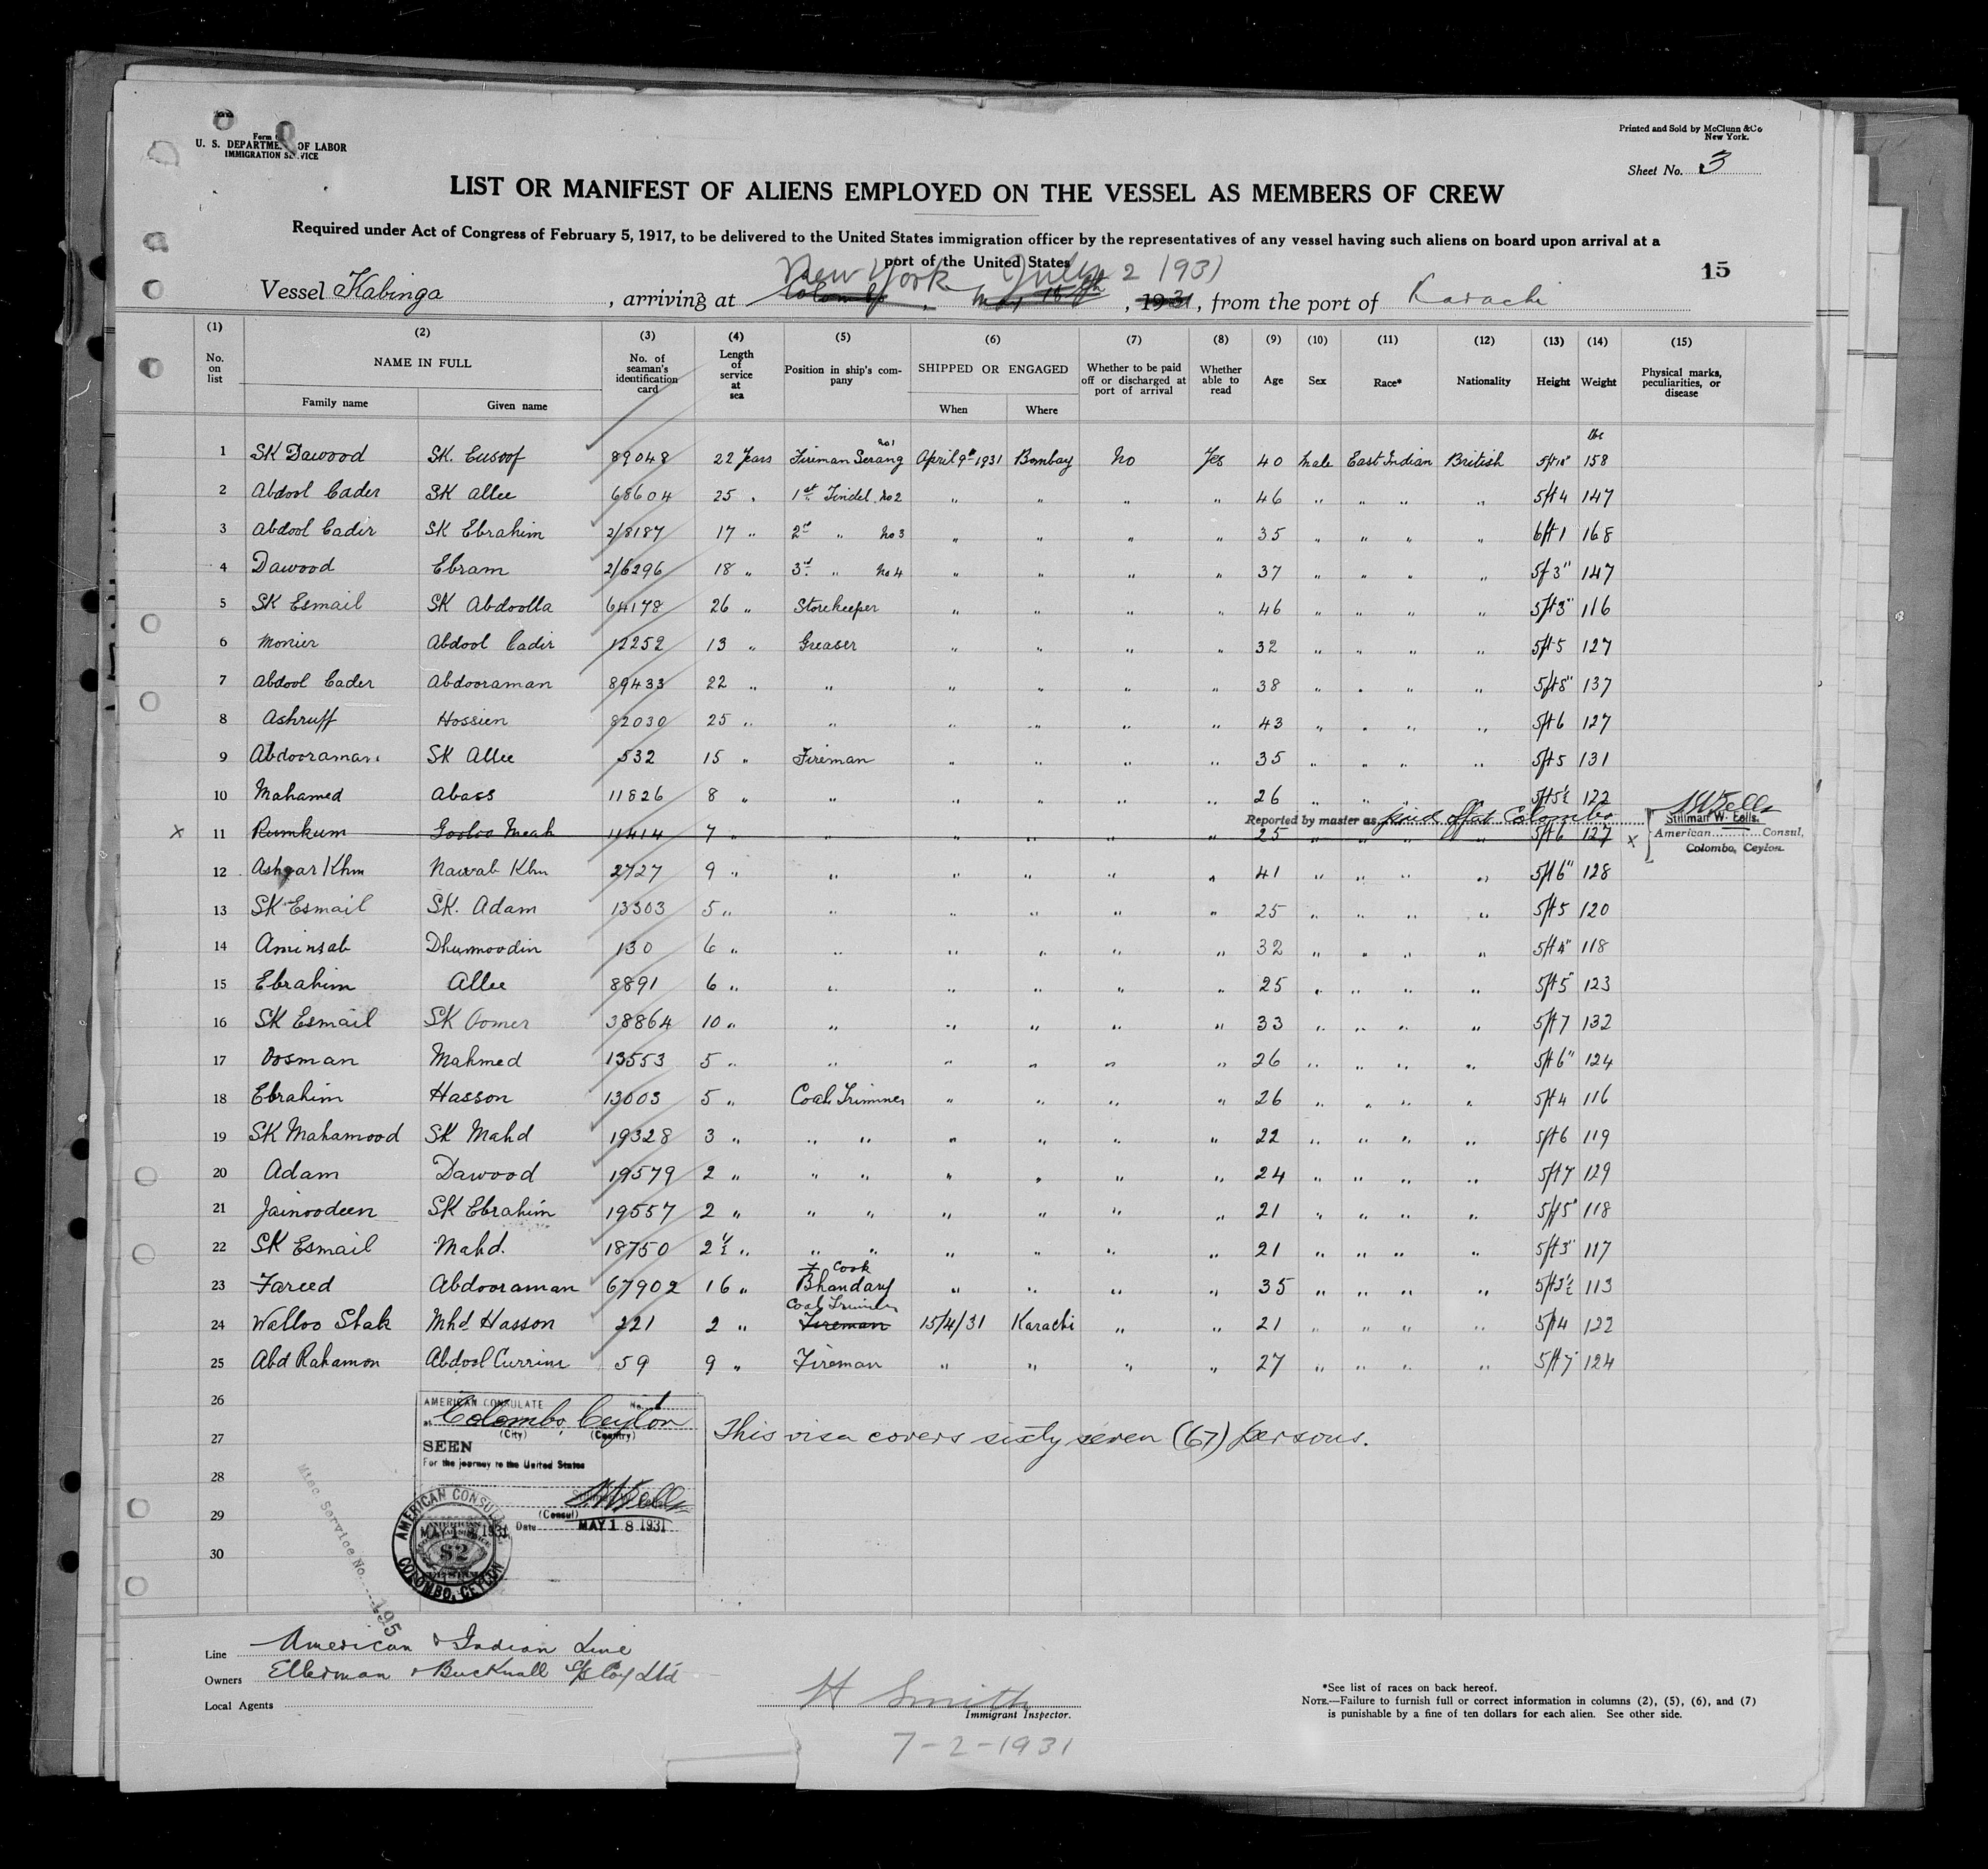 Form
U. S. DEPARTMENT OF LABOR
IMMIGRATION SERVICE
Printed and Sold by McClunn & Co
New York.
Sheet No. 3
LIST OR MANIFEST OF ALIENS EMPLOYED ON THE VESSEL AS MEMBERS OF CREW
Required under Act of Congress of February 5, 1917, to be delivered to the United States immigration officer by the representatives of any vessel having such aliens on board upon arrival at a
port of the United States
15
New York July 2 1931
Vessel Kabinga, arriving at Colombo, May 18th, 1931, from the port of Karachi
(1) (2) (3) (4) (5) (6) (7) (8) (9) (10) (11) (12) (13) (14) (15)
No. on list NAME IN FULL Family name Given name No. of seaman's identification card Length of service at sea Position in ship's company SHIPPED OR ENGAGED When Where Whether to be paid off or discharged at port of arrival Whether able to read Age Sex Race* Nationality Height Weight Physical marks, peculiarities, or disease
lbs
1 SK Dawood SK. Eusoof 89048 22 Years Fireman Serang no1 April 9th 1931 Bombay No Yes 40 Male East Indian British 158
2 Abdool Cader SK Allee 68604 25 " 1st Tindel no 2 " " " " 46 " " " " 5ft 4 147
3 Abdool Cadir SK Ebrahim 2/8187 17 " 2nd " No 3 " " " " 35 " " " " 6ft 1 168
4 Dawood Ebram 2/6296 18 " 3rd " No 4 " " " " 37 " " " " 5f 3" 147
5 SK Esmail SK Abdoolla 64178 26 " Storekeeper " " " " 46 " " " " 5ft 3" 116
6 Monier Abdool Cadir 12252 13 " Greaser " " " " 32 " " " " 5ft 5 127
7 Abdool Cader Abdooraman 89433 22 " " " " " " 38 " " " " 5ft 8" 137
8 Ashruff Hossien 82030 25 " " " " " " 43 " " " " 5ft 6 127
9 Abdooraman SK Allee 532 15 " Fireman " " " " 35 " " " " 5ft 5 131
10 Mahamed Abass 11826 8 " " " " " " 26 " " " " 5ft 5½ 122
Reported by master as paid off at Colombo
Stillman W. Eells.
American Consul,
Colombo, Ceylon
x 11 Rumkum Gooloo Meah 11414 7 " " " " " " 25 " " " " 5ft 6 127 x
12 Khm Nawab Khn 2727 9 " " " " " " 41 " " " " 5ft 6" 128
13 SK Esmail SK. Adam 13303 5 " " " " " " 25 " " " " 5ft 5 120
14 Aminsab Dhumoodin 130 6 " " " " " " 32 " " " " 5ft 4" 118
15 Ebrahim Allee 8891 6 " " " " " " 25 " " " " 5ft 5" 123
16 SK Esmail SK Oomer 38864 10 " " " " " " 33 " " " " 5ft 7 132
17 Oosman Mahmed 13553 5 " " " " " " 26 " " " " 5ft 6" 124
18 Ebrahim Hasson 13003 5 " Coal Trimmer " " " " 26 " " " " 5ft 4 116
19 SK Mahamood SK Mahd 19328 3 " " " " " " " 22 " " " " 5ft 6 119
20 Adam Dawood 19579 2 " " " " " " " 24 " " " " 5ft 7 129
21 Jainoodeen SK Ebrahim 19557 2 " " " " " " " 21 " " " " 5ft 5" 118
22 SK Esmail Mahd. 18750 2½ " " " " " " " 21 " " " " 5ft 3" 117
F Cook
23 Fareed Abdooraman 67902 16 " Bhandary " " " " 35 " " " " 5ft 3½ 113
Coal Trimmer
24 Walloo Shak Mhd Hasson 221 2 " Fireman 15/4/31 Karachi " " 21 " " " " 5ft 4 122
25 Abd Rahamon Abdool Currim 59 9 " Fireman " " " " 27 " " " " 5ft 7 124
26
27
28
29
30
AMERICAN CONSULATE No. 1
at Colombo, Ceylon
(City) (Country)
SEEN
For the journey to the United States
(Consul)
Date MAY 18 1931
This visa covers sixty seven (67) persons.
AMERICAN CONSULATE
MAY 18 1931
$2
COLOMBO, CEYLON
Misc. Service No. 195
Line American & Indian Line
Owners Ellerman & Bucknall S/S Coy Ltd
Local Agents
H Smith
Immigrant Inspector.
7-2-1931
*See list of races on back hereof.
NOTE.—Failure to furnish full or correct information in columns (2), (5), (6), and (7)
is punishable by a fine of ten dollars for each alien. See other side.